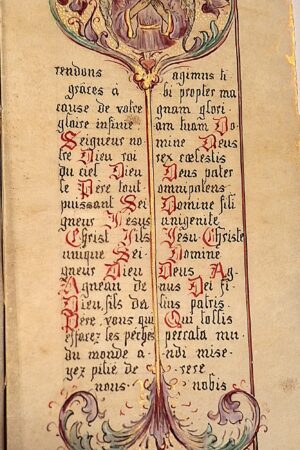 rendons
grâces à
cause de votre
gloire infinie.
Seigneur no
tre Dieu roi
du ciel Dieu
le Père tout
puissant Sei
gneur Jésus
Christ Fils
unique Sei
gneur Dieu
Agneau de
Dieu, fils de
Père, vous qui
effacez les péchés
du monde a
yez pitié de
nous.
agimus ti
bi propter ma
gnam glori
am tuam Do
mine Deus
rex cœlestis
Deus pater
omnipotens
Domine fili
unigenite
Jesu Christe
Domine
Deus Ag
nus Dei fi
lius patris.
Qui tollis
peccata mu
ndi mise
rere
nobis